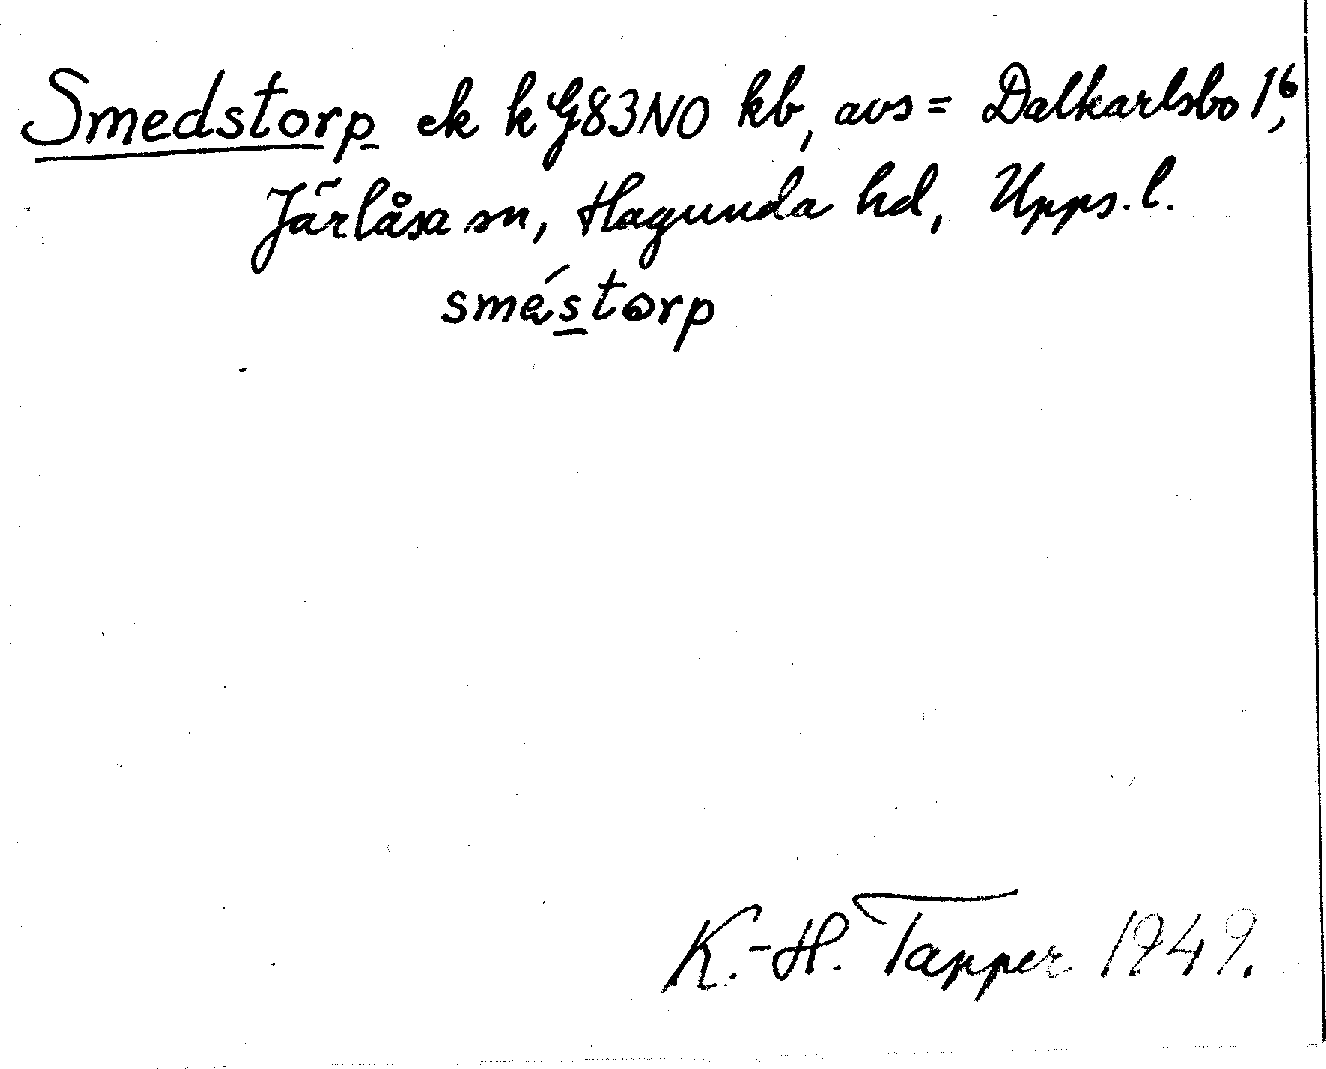 Smedstorp ek k G83NO kb, avs = Dalkarlsbo 1⁶,
Järlåsa sn, Hagunda hd, Upps. l.
sméstorp
K.-H. Tapper 1949.